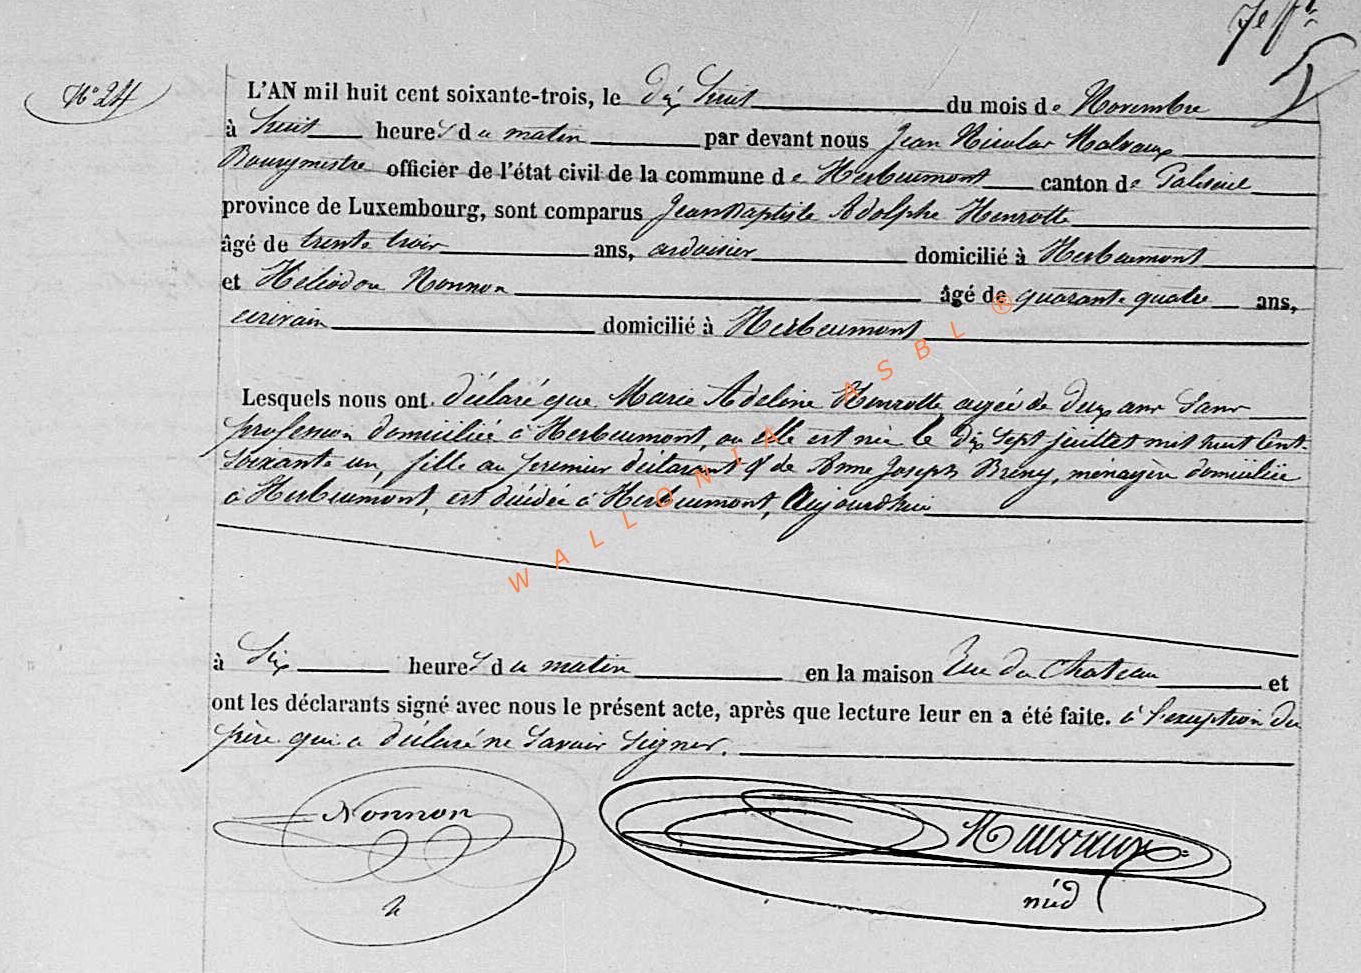 7e ft
N° 24
L'AN mil huit cent soixante-trois, le dix huit du mois de Novembre
à huit heures du matin par devant nous Jean Nicolas Malvaux
Bourgmestre officier de l'état civil de la commune de Herbeumont canton de Paliseul
province de Luxembourg, sont comparus Jean Baptiste Adolphe Henrotte
âgé de trente trois ans, ardoisier domicilié à Herbeumont
et Héliodore Nonnon âgé de quarante quatre ans,
écrivain domicilié à Herbeumont
Lesquels nous ont déclaré que Marie Adeline Henrotte, agée de deux ans sans
profession domiciliée à Herbeumont, ou elle est née le dix sept juillet mil huit cent
soixante un, fille au premier déclarant & de Anne Joseph Breny, ménagère domiciliée
à Herbeumont, est décédée à Herbeumont, Aujourd'hui
à Six heures du matin en la maison Rue du Chateau et
ont les déclarants signé avec nous le présent acte, après que lecture leur en a été faite. à l'exception du
père qui a déclaré ne savoir signer.
Nonnon
Malvaux
WALLONIA ASBL ®